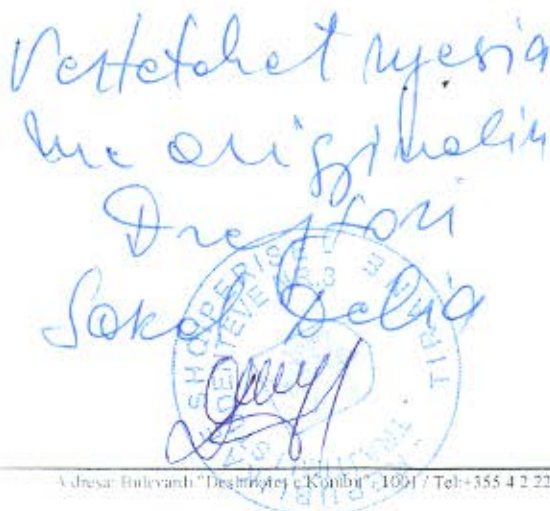 Vërtetohet njësia
me origjinalin
Drejtori
Sokol Delia
SHQIPERISE
TIRANE
Adresa: Bulevardi "Deshmorët e Kombit", 1001 / Tel:+355 4 2 22